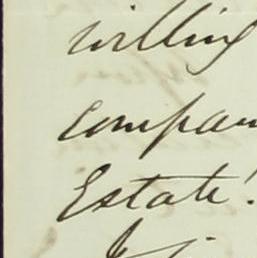 willing
compan
Estate!